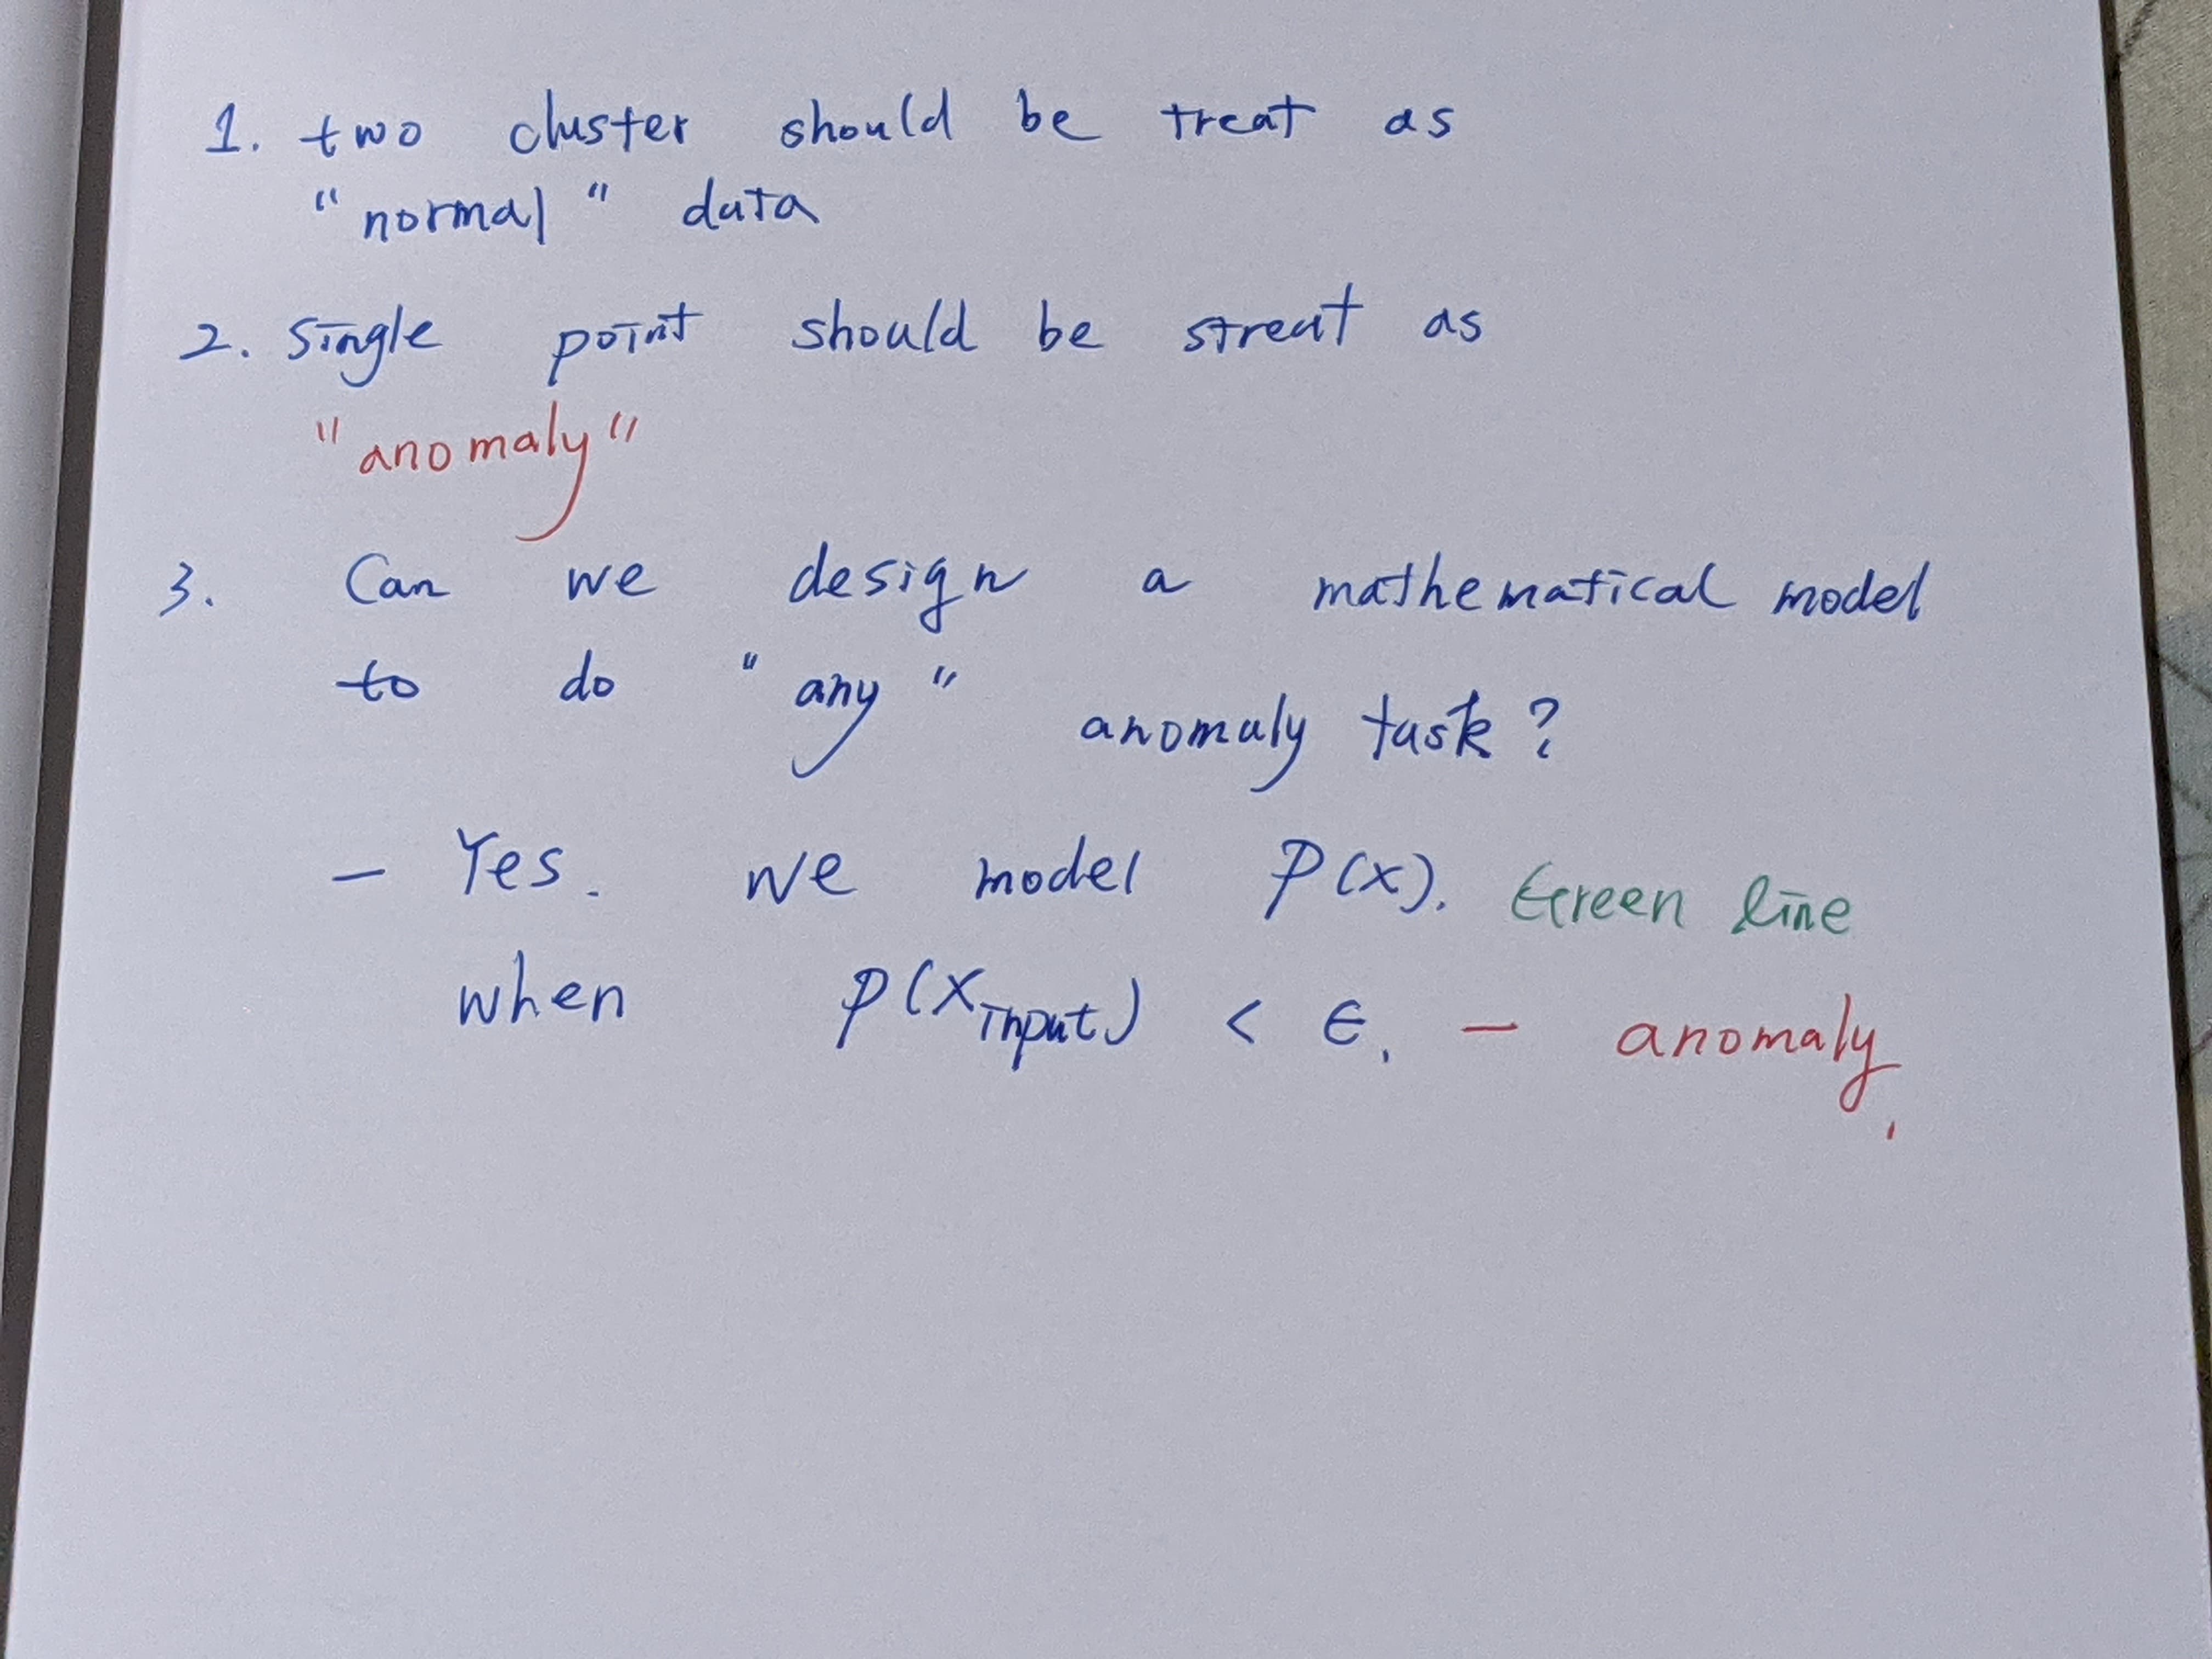 1. two cluster should be treat as
"normal" data
2. single point should be streat as
"anomaly"
3. Can we design a mathematical model
to do "any" anomaly task?
- Yes. we model P(x). Green line
when p(x_input) < ϵ. - anomaly.